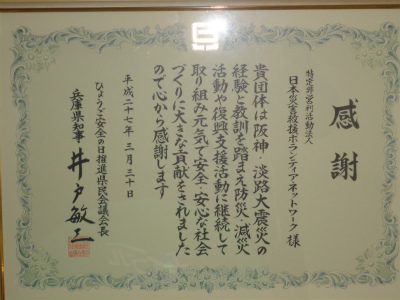 感謝
特定非営利活動法人
日本災害救援ボランティアネットワーク 様
貴団体は阪神・淡路大震災の
経験と教訓を踏まえ防災・減災
活動や復興支援活動に継続して
取り組み元気で安全・安心な社会
づくりに大きな貢献をされました
ので心から感謝します
平成二十七年 三月三十日
ひょうご安全の日推進県民会議会長
兵庫県知事 井戸敏三